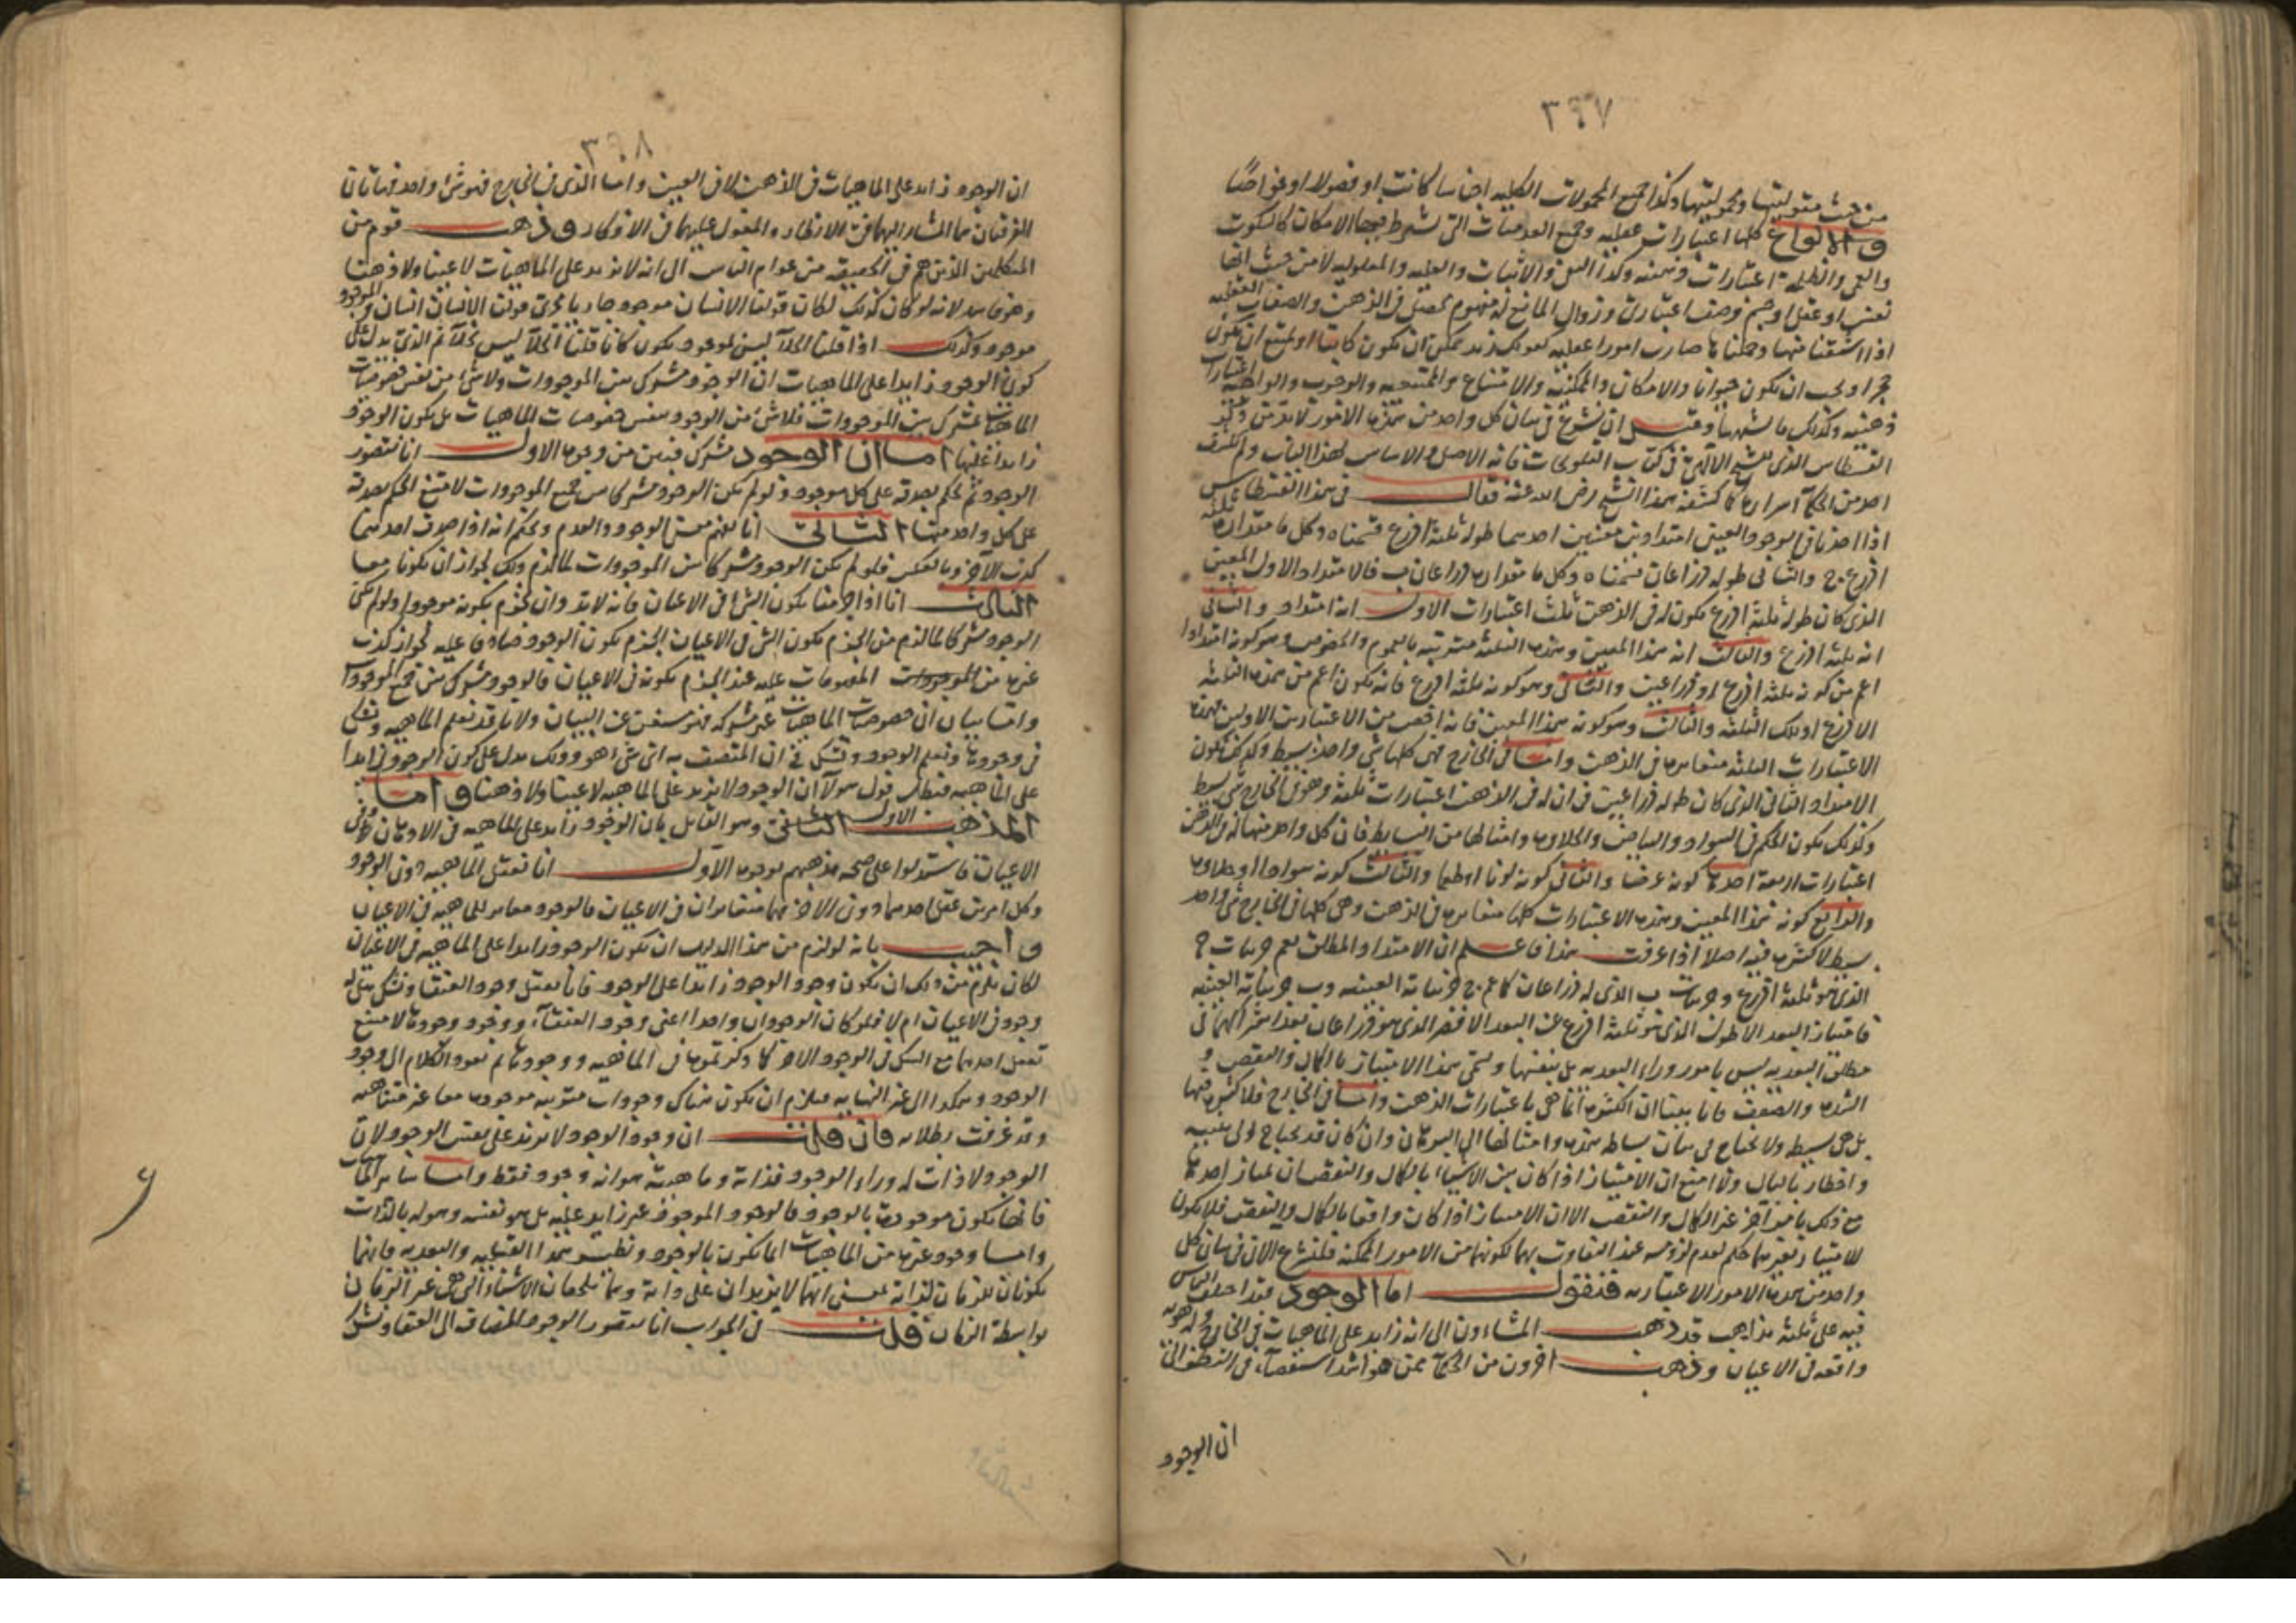 ٣٤٧
من حيث مقوليتها ومحموليتها وكذا جميع المحمولات الكلية اجناسا كانت او فصولا او خواصا
والانواع كلها اعتبارات عقلية وجميع العدميات التى تشترط فيها الامكان كالسكوت
والعمى والظلمة اعتبارات ذهنية وكذا السلب والاثبات والعلية والمعلولية لا من حيث انها
نفس او عقل او جسم وصف اعتبارى وزوال المانع له مفهوم يحصل فى الذهن والصفات العقلية
اذا اشتقنا منها وحملنا صارت امورا عقلية كقولك زيد ممكن ان يكون كاتبا او يمتنع ان يكون
حجرا او يجب ان يكون حيوانا والامكان والممكنية والامتناع والممتنعية والوجوب والواجبية اعتبارات
ذهنية وكذلك ما اشبهها وقبل ان نشرع فى بيان كل واحد من هذه الامور لابد من ذكر
القسطاس الذى للشيخ الالهى فى كتاب التلويحات فانه الاصل والاساس لهذا الباب ولم يكشف
احد من الحكماء اسراره كما كشفه هذا الشيخ رضى الله عنه فقال فى هذا القسطاس
اذا اخذنا فى الوجود العينى امتدادين معينين احدهما طوله ثلثة اذرع قسمناه وكل ما مقداره ثلثة
اذرع ج والثانى طوله ذراعان قسمناه وكل ما مقداره ذراعان ب فالامتداد الاول المعين
الذى كان طوله ثلثة اذرع يكون له فى الذهن ثلث اعتبارات الاول انه امتداد والثانى
انه ثلثة اذرع والثالث انه هذا المعين وهذه الثلثة مترتبة بالعموم والخصوص وهو كونه امتدادا
اعم من كونه ثلثة اذرع او ذراعين والثانى وهو كونه ثلثة اذرع فانه يكون اعم من هذه الثلثة
الاذرع او تلك الثلثة والثالث وهو كونه هذا المعين فانه اخص من الاعتبارين الاولين فهذه
الاعتبارات الثلثة متغايرة فى الذهن واما فى الخارج فهى كلها شى واحد بسيط وكذلك يكون
الامتداد الثانى الذى كان طوله ذراعين فى ان له فى الذهن اعتبارات ثلثة وهو فى الخارج شى بسيط
وكذلك يكون الحكم فى السواد والبياض والحلاوة وامثالها من البسايط فان كل واحد منها له فى الذهن
اعتبارات اربعة احدها كونه عرضا والثانى كونه لونا او طعما والثالث كونه سوادا او حلاوة
والرابع كونه هذا المعين وهذه الاعتبارات كلها متغايرة فى الذهن وهى كلها فى الخارج شى واحد
بسيط لا كثرة فيه اصلا اذا عرفت هذا فاعلم ان الامتداد المطلق يعم جزئيات ج
الذى هو ثلثة اذرع وجزئيات ب الذى له ذراعان كما عم ج جزئياته العينية وب جزئياته العينية
فامتياز البعد الاطول الذى هو ثلثة اذرع عن البعد الاقصر الذى هو ذراعان بعد اشتراكهما فى
مطلق البعدية ليس بامور وراء البعدية بل بنفسها ويسمى هذا الامتياز بالكمال والنقص و
الشدة والضعف فانا بينا ان الكثرة انما هى باعتبارات الذهن واما فى الخارج فلا كثرة فيها
بل هى بسيط ولا يحتاج فى بيان بساطة هذه وامثالها الى البرهان وان كان قد يحتاج الى تنبيه
واخطار بالبال ولا امنع ان الامتياز اذا كان بين الاشياء بالكمال والنقصان يمتاز احدها
مع ذلك بامر آخر غير الكمال والنقص الا ان الامتياز اذا كان واقعا بالكمال والنقص فلا يكون
للامتياز بغيرهما حكم لعدم لزومه عند التفاوت بهما لكونهما من الامور الممكنة فلنشرع الان فى بيان كل
واحد من هذه الامور الاعتبارية فنقول اما الوجود فقد اختلف الناس
فيه على ثلثة مذاهب قد ذهب المشاءون الى انه زايد على الماهيات فى الخارج وله هوية
واقعة فى الاعيان وذهب اخرون من الحكماء ممن هو اشد استقصاء فى النظر الى
ان الوجود
٣٤٨
ان الوجود زايد على الماهيات فى الذهن لا فى العين واما الذى فى الخارج فهو شئ واحد فهاتان
الفرقتان هما المشار اليهما فى الانظار والمعول عليهما فى الافكار وذهب قوم من
المتكلمين الذين هم فى الحقيقة من عوام الناس الى انه لا يزيد على الماهيات لا عينا ولا ذهنا
وهو فاسد لانه لو كان كذلك لكان قولنا الانسان موجود جاريا مجرى قولنا الانسان انسان والموجود
موجود وكذلك اذا قلنا الخلاء ليس بموجود يكون كانا قلنا الخلاء ليس بخلاء ثم الذى يدل على
كون الوجود زايدا على الماهيات ان الوجود مشترك بين الموجودات ولا شئ من نفس خصوصيات
الماهيات بمشترك بين الموجودات فلا شئ من الوجود بنفس خصوصيات الماهيات بل يكون الوجود
زايدا عليها اما ان الوجود مشترك فيه من وجوه الاول انا نتصور
الوجود ثم نحكم بصدقه على كل موجود ولو لم يكن الوجود مشتركا بين جميع الموجودات لامتنع الحكم بصدقه
على كل واحد منها الثانى انا نفهم معنى الوجود والعدم ونحكم انه اذا صدق احدهما
كذب الآخر وبالعكس فلو لم يكن الوجود مشتركا بين الموجودات لما لزم ذلك لجواز ان يكونا معا
الثالث انا اذا جزمنا بكون الشئ فى الاعيان فانه لابد وان نجزم بكونه موجودا ولو لم يكن
الوجود مشتركا لما لزم من الجزم بكون الشئ فى الاعيان الجزم بكون الوجود صادقا عليه لجواز كذب
غيره من الموجودات المفهومات عليه عند الجزم بكونه فى الاعيان فالوجود مشترك بين جميع الموجودات
واما بيان ان خصوصيات الماهيات غير مشتركة فهو مستغن عن البيان ولانا قد نعلم الماهية ونشك
فى وجودها ونعلم الوجود ونشك فى ان المتصف به اى شئ هو وذلك يدل على كون الوجود زايدا
على الماهية فبطل قول هؤلاء ان الوجود لا يزيد على الماهية لا عينا ولا ذهنا واما
المذهب الاول الثانى وهو القائل بان الوجود زايد على الماهية فى الاذهان وفى
الاعيان فاستدلوا على صحة مذهبهم بوجوه الاول انا نعقل الماهية دون الوجود
وكل امرين عقل احدهما دون الاخر فهما متغايران فى الاعيان فالوجود مغاير للماهية فى الاعيان
واجيب بانه لو لزم من هذا الدليل ان يكون الوجود زايدا على الماهية فى الاعيان
لكان يلزم من ذلك ان يكون وجود الوجود زايدا على الوجود فانا نعقل وجود العنقا ونشك هل له
وجود فى الاعيان ام لا فلو كان الوجودان واحدا اعنى وجود العنقاء ووجود وجودها لامتنع
تعقل احدهما مع الشك فى الوجود الاخر كما ذكرتموه فى الماهية ووجودها ثم نعود الكلام الى وجود
الوجود وهكذا الى غير النهاية فيلزم ان يكون هناك وجودات مترتبة موجودة معا غير متناهية
وقد عرفت بطلانه فان قلت ان وجود الوجود لا يزيد على نفس الوجود لان
الوجود لا ذات له وراء الوجود فذاته وماهيته هو انه وجود فقط واما ساير الماهيات
فانها يكون موجودة بالوجود فالوجود الموجود غير زايد عليه بل هو نفسه وهو له بالذات
واما وجود غيره من الماهيات انما يكون بالوجود ونظير هذا القبلية والبعدية فانهما
يكونان للزمان لذاته بمعنى انهما لا يزيدان على ذاته وهما يلحقان الاشياء التى هى غير الزمان
بواسطة الزمان قلت فى الجواب انا نتصور الوجود المضاف الى العنقا ونشك